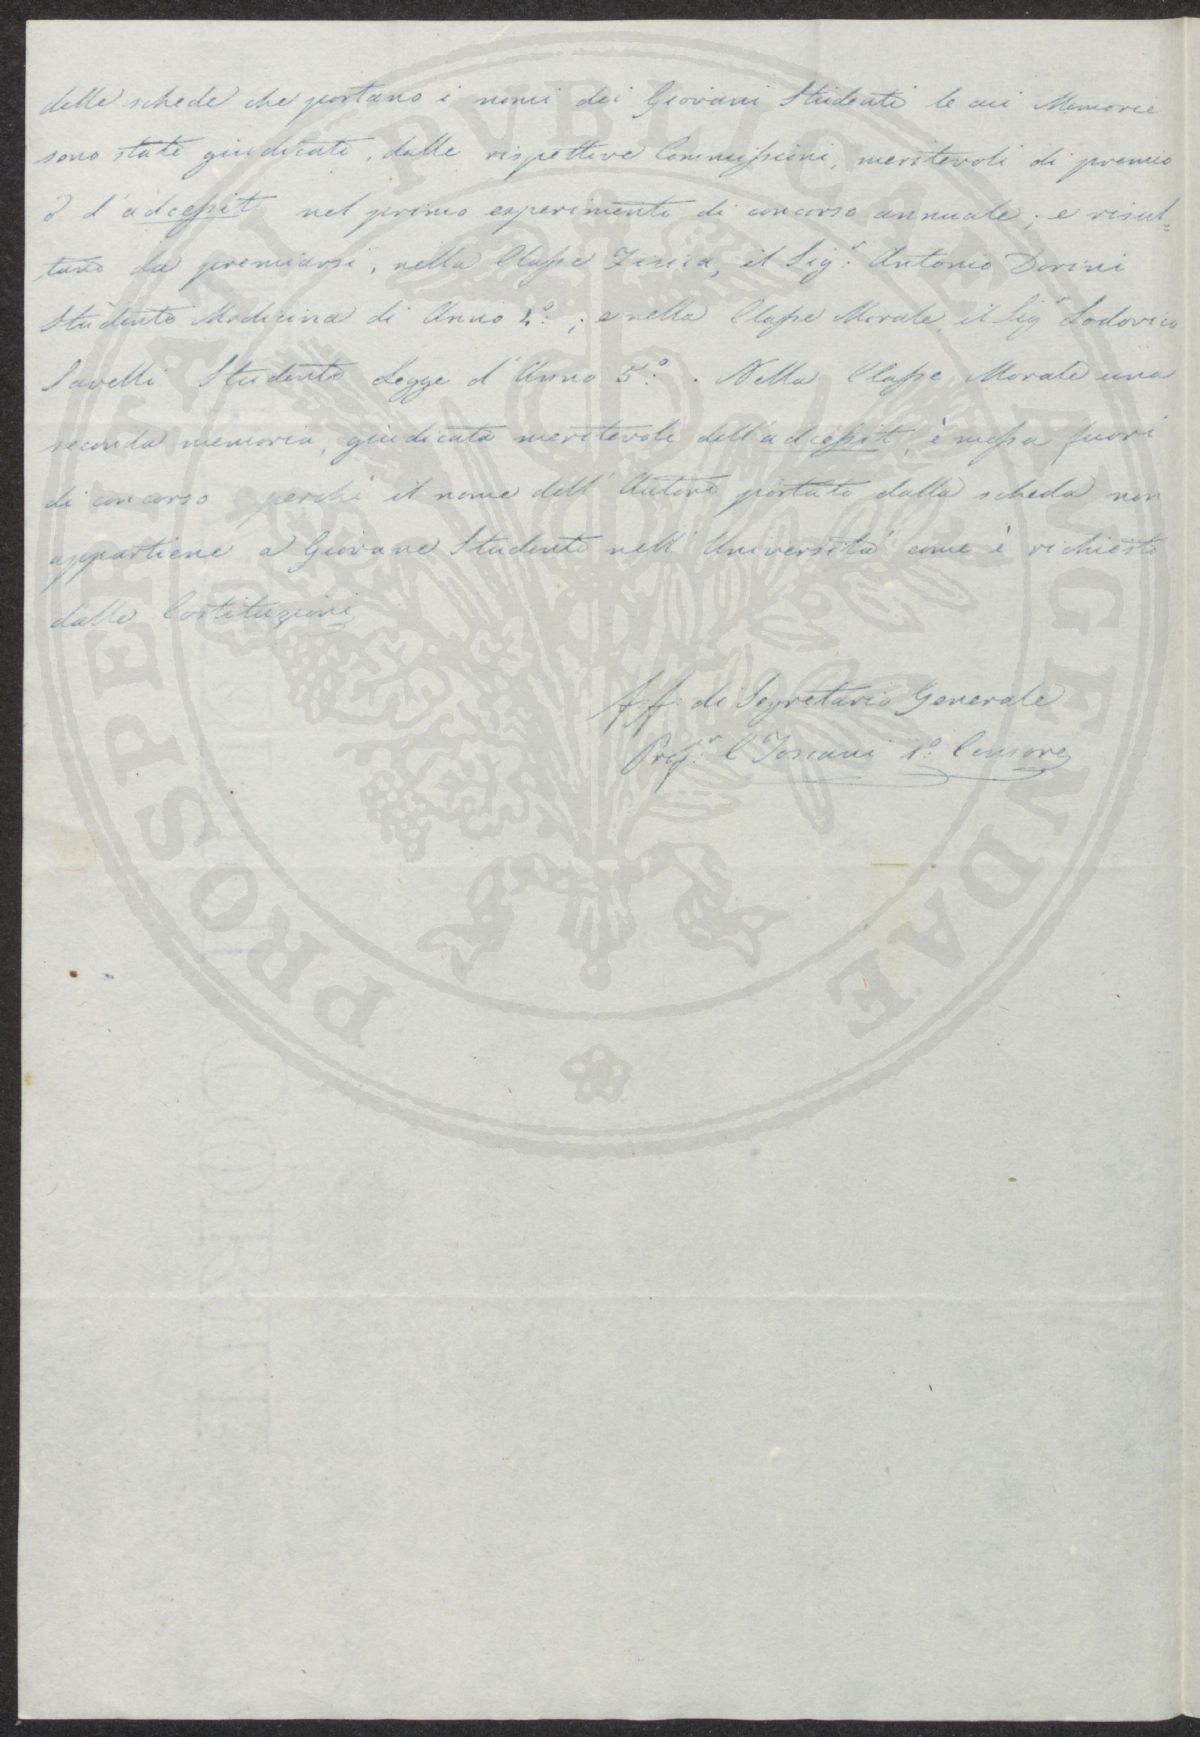 delle schede che portano i nomi dei Giovani Studenti le cui Memorie
sono state giudicate, dalle rispettive Commissioni, meritevoli di premio
o d'adcessit nel primo esperimento di concorso annuale; e risul-
tano da premiarsi, nella Classe Fisica, il Sigr. Antonio Dorini
Studente Medicina di Anno 4º.; e nella Classe Morale, il Sigr Lodovico
Savelli Studente Legge d'Anno 5º.. Nella Classe Morale una
seconda memoria, giudicata meritevole dell'adcessit, è messa fuori
di concorso perchè il nome dell'Autore portato dalla scheda non
appartiene a Giovane Studente nell'Università come è richiesto
dalle Costituzioni
ff. di Segretario Generale
Profr. C Toscani 1º. Censore
PROSPERITATI PVBLICAE AVGENDAE